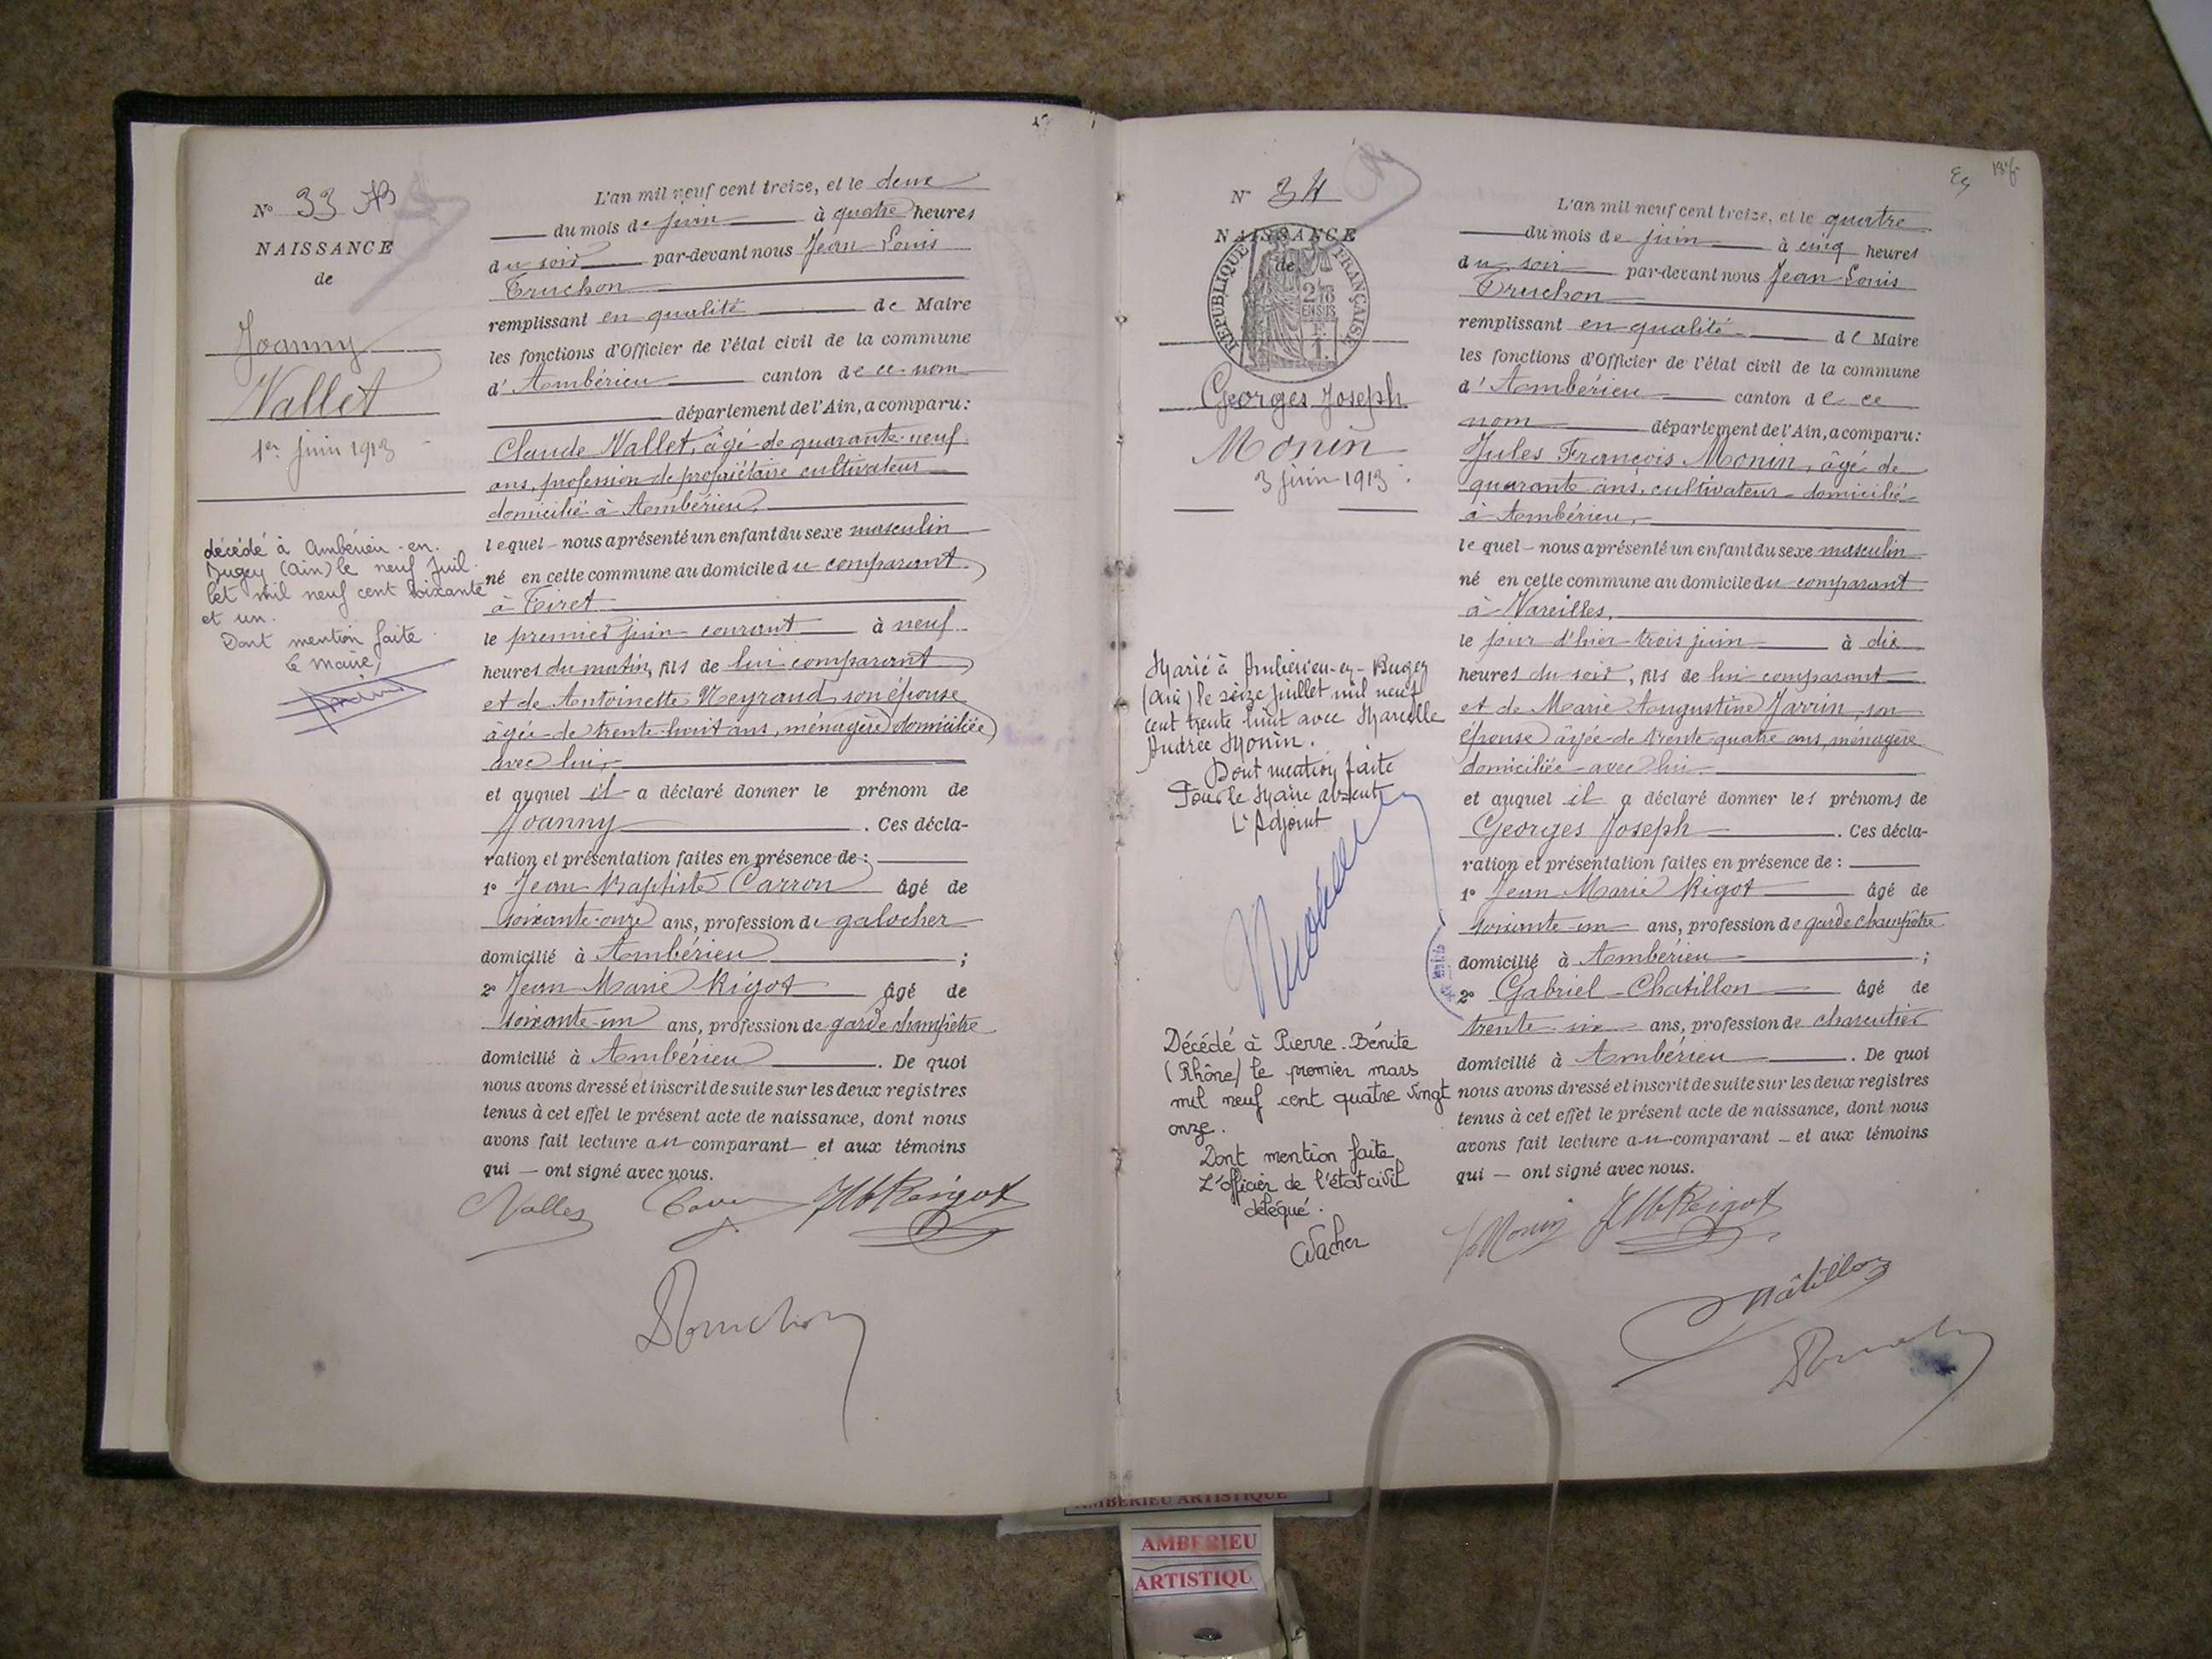 N° 33
NAISSANCE
de
Joanny
Vallet
1er juin 1913
décédé à Ambérieu-en-
Bugey (Ain) le neuf juil-
let mil neuf cent soixante
et un.
Dont mention faite
le maire,
L'an mil neuf cent treize, et le deux
du mois de juin à quatre heures
du soir par-devant nous Jean Louis
Truchon
remplissant en qualité de Maire
les fonctions d'Officier de l'état civil de la commune
d'Ambérieu canton de ce nom
département de l'Ain, a comparu:
Claude Vallet, âgé de quarante-neuf
ans, profession de propriétaire cultivateur
domicilié à Ambérieu,
lequel nous a présenté un enfant du sexe masculin
né en cette commune au domicile du comparant
à Tiret
le premier juin courant à neuf
heures du matin, fils de lui comparant
et de Antoinette Neyraud, son épouse
âgée de trente-huit ans, ménagère domiciliée
avec lui,
et auquel il a déclaré donner le prénom de
Joanny. Ces décla-
ration et présentation faites en présence de :
1° Jean Baptiste Carron âgé de
soixante-onze ans, profession de galocher
domicilié à Ambérieu ;
2° Jean Marie Rigot âgé de
soixante-un ans, profession de garde champêtre
domicilié à Ambérieu. De quoi
nous avons dressé et inscrit de suite sur les deux registres
tenus à cet effet le présent acte de naissance, dont nous
avons fait lecture au comparant et aux témoins
qui — ont signé avec nous.
Vallet JM Rigot
Truchon
N° 34
NAISSANCE
de
RÉPUBLIQUE FRANÇAISE
Georges Joseph
Monin
3 juin 1913
Marié à Ambérieu-en-Bugey
(Ain) le seize juillet mil neuf
cent trente huit avec Marcelle
Andrée Monin.
Dont mention faite
Pour le Maire absent
L'Adjoint
Décédé à Pierre-Bénite
(Rhône) le premier mars
mil neuf cent quatre vingt
onze.
Dont mention faite
L'officier de l'état civil
délégué.
L'an mil neuf cent treize, et le quatre
du mois de juin à cinq heures
du soir par-devant nous Jean Louis
Truchon
remplissant en qualité de Maire
les fonctions d'Officier de l'état civil de la commune
d'Ambérieu canton de ce
nom département de l'Ain, a comparu:
Jules François Monin, âgé de
quarante ans, cultivateur domicilié
à Ambérieu,
lequel nous a présenté un enfant du sexe masculin
né en cette commune au domicile du comparant
à Vareilles,
le jour d'hier trois juin à dix
heures du soir, fils de lui comparant
et de Marie Augustine Jarrin, son
épouse âgée de trente-quatre ans, ménagère
domiciliée avec lui.
et auquel il a déclaré donner les prénoms de
Georges Joseph. Ces décla-
ration et présentation faites en présence de :
1° Jean Marie Rigot âgé de
soixante-un ans, profession de garde champêtre
domicilié à Ambérieu ;
2° Gabriel Chatillon âgé de
trente six ans, profession de charcutier
domicilié à Ambérieu. De quoi
nous avons dressé et inscrit de suite sur les deux registres
tenus à cet effet le présent acte de naissance, dont nous
avons fait lecture au comparant — et aux témoins
qui — ont signé avec nous.
Monin JM Rigot
Châtillon
AMBERIEU ARTISTIQUE
AMBERIEU
ARTISTIQU